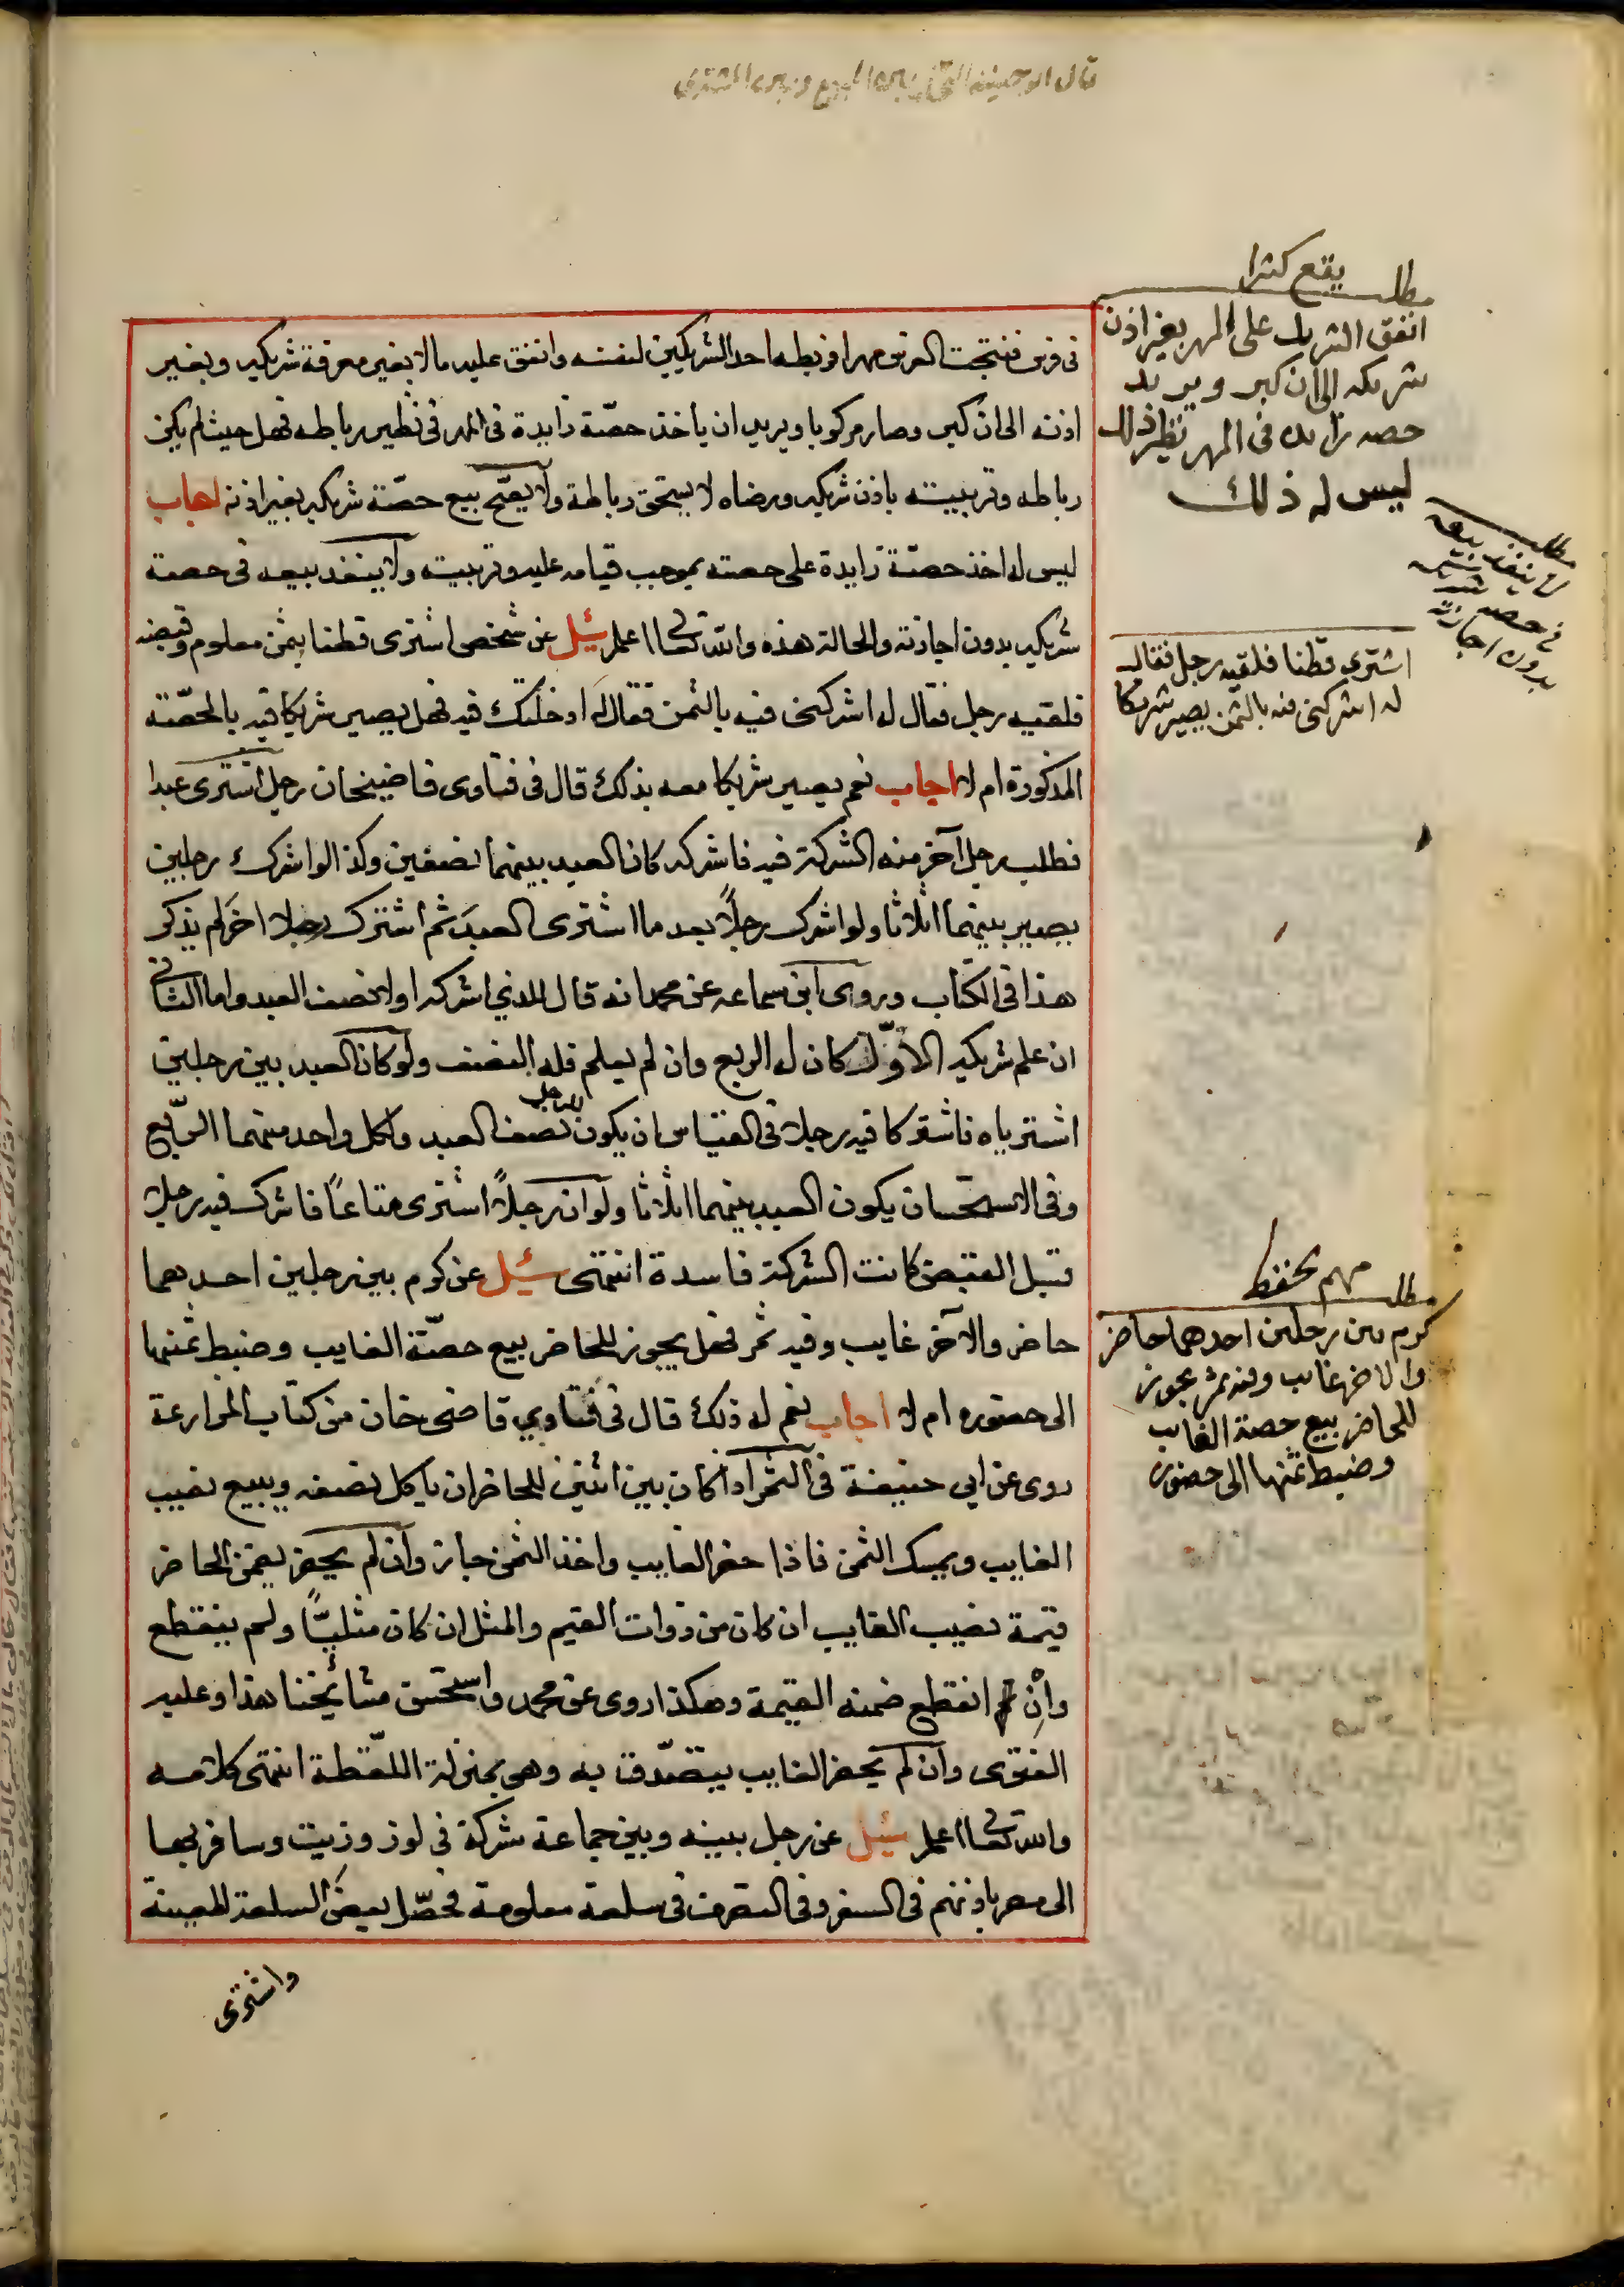 قال ابو حنيفة
في فرس فنتجت الفرس مهرا فربطه احد الشريكين لنفسه وانفق عليه مالا بغير معرفة شريكه وبغير
اذنه الى ان كبر وصار مركوبا ويريد ان ياخذ حصّة زايدة في المهر في نظير رباطه فهل حيث لم يكن
رباطه وتربيته باذن شريكه ورضاه لا يستحق رباطة ولا يصّح بيع حصّة شريكه بغير اذنه اجاب
ليس له اخذ حصّة زايدة على حصته بموجب قيامه عليه وتربيته ولا ينفد بيعه في حصة
شريكه بدون اجازته والحالة هذه والله تعالى اعلم سئل عن شخص اشترى قطنا بثمن معلوم وقبضه
فلقيه رجل فقال له اشركني فيه بالثمن فقال له ادخلتك فيه فهل يصير شريكا فيه بالحصّة
المذكورة ام لا اجاب نعم يصير شريكا معه بذلك قال في فتاوى قاضيخان رجل اشترى عبدا
فطلب رجل آخر منه الشركة فيه فاشركه كان العبد بينهما نصفين وكذا لو اشرك رجلين
يصير بينهما اثلاثا ولو اشرك رجلًا بعد ما اشترى العبد ثم اشترك رجلا اخر لم يذكر
هذا في الكتاب وروى ابن سماعه عن محمد انه قال للذي اشركه اولا نصف العبد واما الثاني
ان علم شريكه الاوّل كان له الربع وان لم يعلم فله النصف ولو كان العبد بين رجلين
اشترياه فاشتركا فيه رجلا في القياس ان يكون للرجل نصف العبد ولكل واحد منهما الرّبع
وفي الاستحسان يكون العبد بينهما اثلاثا ولو ان رجلًا اشترى متاعًا فاشرك فيه رجلا
قبل القبض كانت الشركة فاسدة انتهى سئل عن كرم بين رجلين احدهما
حاضر والاخر غايب وفيه ثمر فهل يجوز للحاضر بيع حصّة الغايب وضبط ثمنها
الى حضوره ام لا اجاب نعم له ذلك قال في فتاوي قاضي خان من كتاب المزارعة
روى عن ابي حنيفة في الثمر اذا كان بين اثنين للحاضر ان ياكل نصفه ويبيع نصيب
الغايب ويمسك الثمن فاذا حضر الغايب واخذ الثمن جاز وان لم يحضر يضمن الحاضر
قيمة نصيب الغايب ان كان من ذوات القيم والمثل ان كان مثليًّا ولم ينقطع
وان انقطع ضمنه القيمة وهكذا روى عن محمد واستحسن مشائخنا هذا وعليه
الفتوى وان لم يحضر الغايب يتصّدق به وهي بمنزلة اللّقطة انتهى كلامه
والله تعالى اعلم سئل عن رجل بينه وبين جماعة شركة في لوز وزيت وسافر بها
الى مصر باذنهم في السفر وفي التصرف في سلعة معلومة فحصّل بعض السلعة المعينة
واشترى
يقع كثيرا
مطلب
انفق الشريك على المهر بغير اذن
شريكه الى ان كبر ويريد
حصه زايده في المهر نظير ذلك
ليس له ذلك
مطلب
لا ينفذ بيعه
في حصة شريكه
بدون اجازته
اشترى قطنا فلقيه رجل فقال
له اشركني فيه بالثمن يصير شريكا
مهم يحفظ
مطلب
كرم بين رجلين احدهما حاضر
والاخر غايب وفيه ثمر يجوز
للحاضر بيع حصة الغايب
وضبط ثمنها الى حضوره